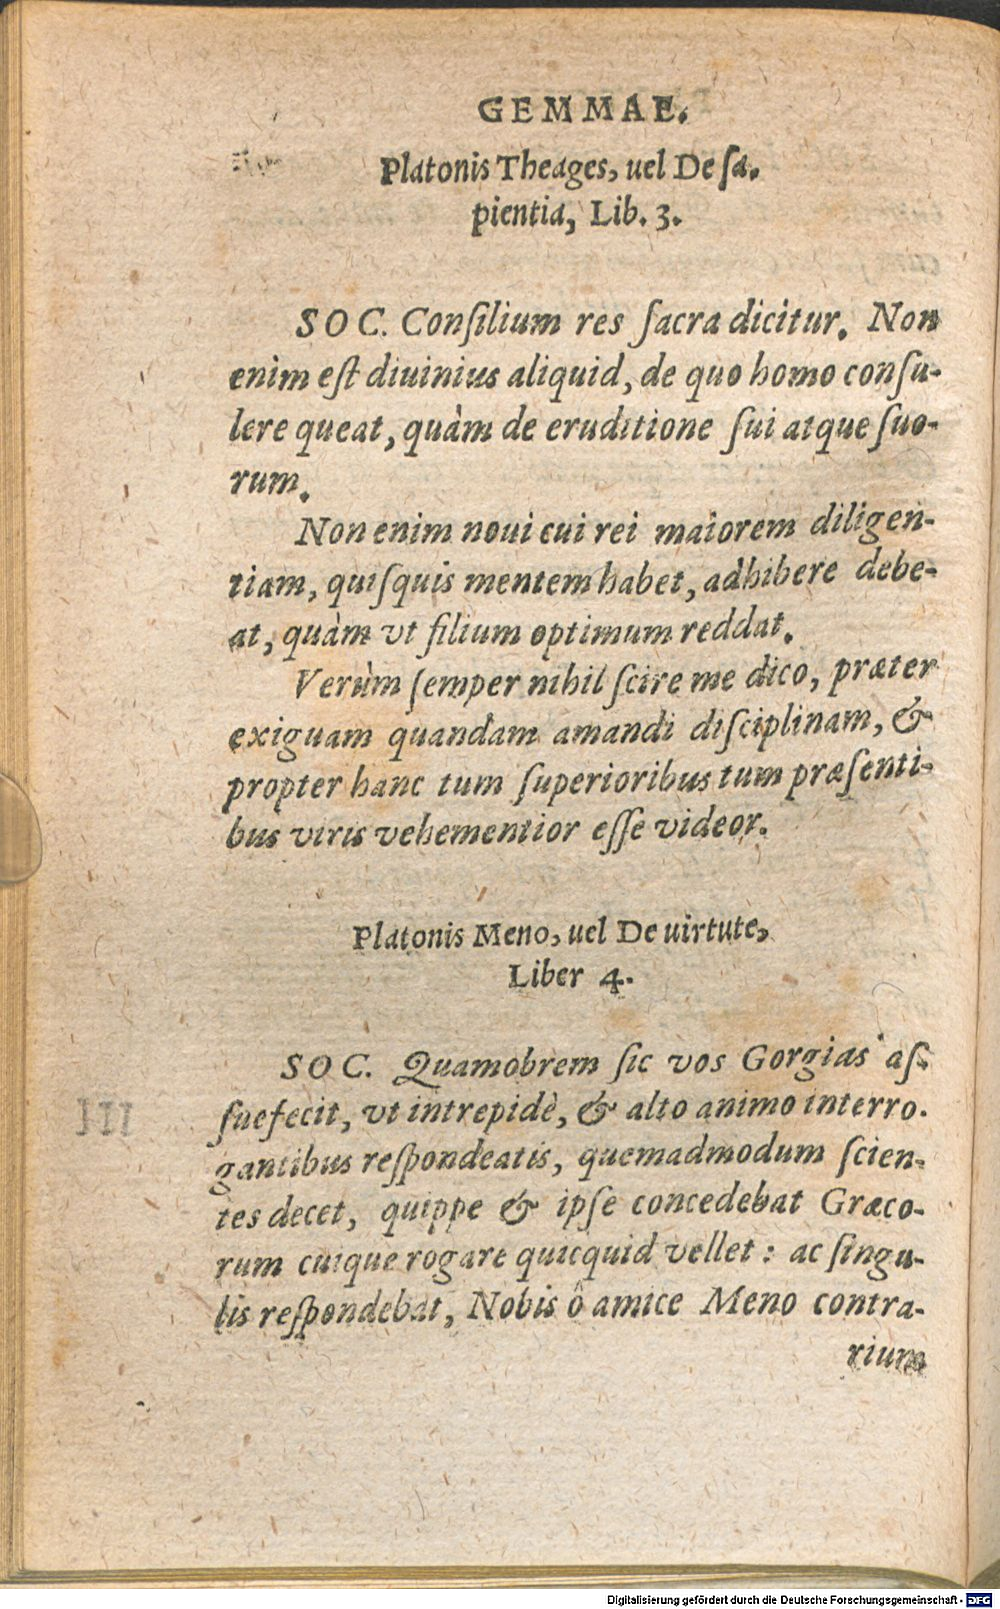 GEMMAE.
Platonis Theages, uel De ſa.
pientia, Lib. 3.
SOC. Conſilium res ſacra dicitur. Non
enim eſt diuinius aliquid, de quo homo conſu-
lere queat, quàm de eruditione ſui atque ſuo-
rum.
Non enim noui cui rei maiorem diligen-
tiam, quiſquis mentem habet, adhibere debe-
at, quàm vt filium optimum reddat.
Verùm ſemper nihil ſcire me dico, præter
exiguam quandam amandi diſciplinam, &
propter hanc tum ſuperioribus tum præſenti-
bus viris vehementior eſſe videor.
Platonis Meno, uel De uirtute,
Liber 4.
SOC. Quamobrem ſic vos Gorgias aſ-
ſuefecit, vt intrepidè, & alto animo interro.
gantibus reſpondeatis, quemadmodum ſcien-
tes decet, quippe & ipſe concedebat Græco-
rum cuique rogare quicquid vellet: ac ſingu-
lis reſpondebat, Nobis ô amice Meno contra-
rium
Digitalisierung gefördert durch die Deutsche Forschungsgemeinschaft - DFG